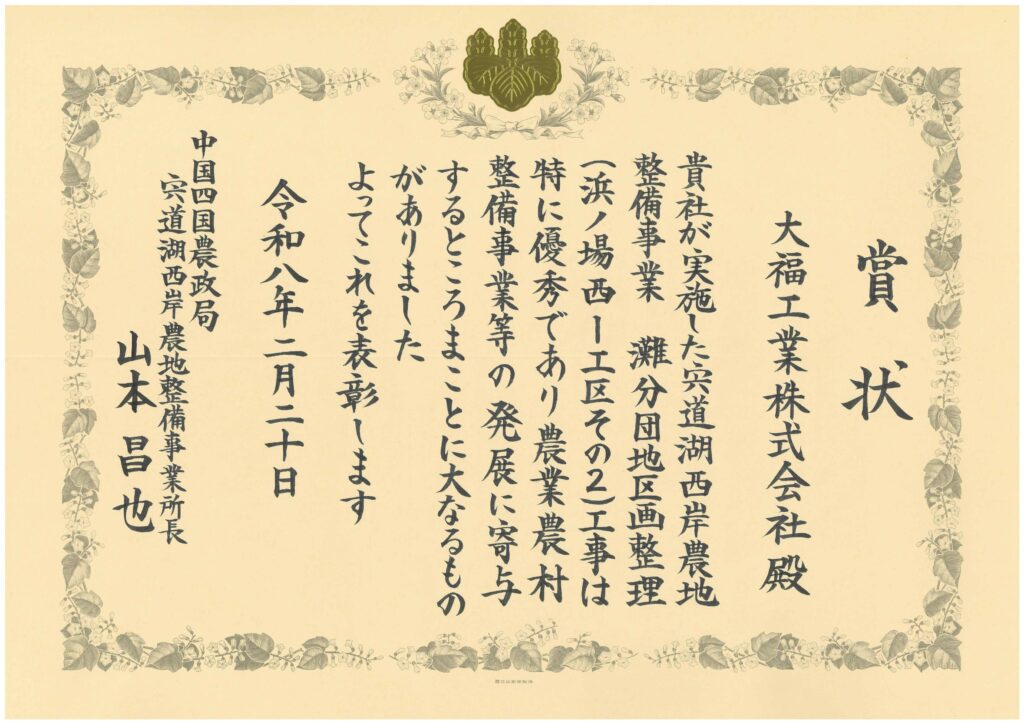 賞状
大福工業株式会社殿
貴社が実施した宍道湖西岸農地
整備事業　灘分団地区画整理
(浜ノ場西ー工区その2)工事は
特に優秀であり農業農村
整備事業等の発展に寄与
するところまことに大なるもの
がありました
よってこれを表彰します
令和八年二月二十日
中国四国農政局
宍道湖西岸農地整備事業所長
山本昌也